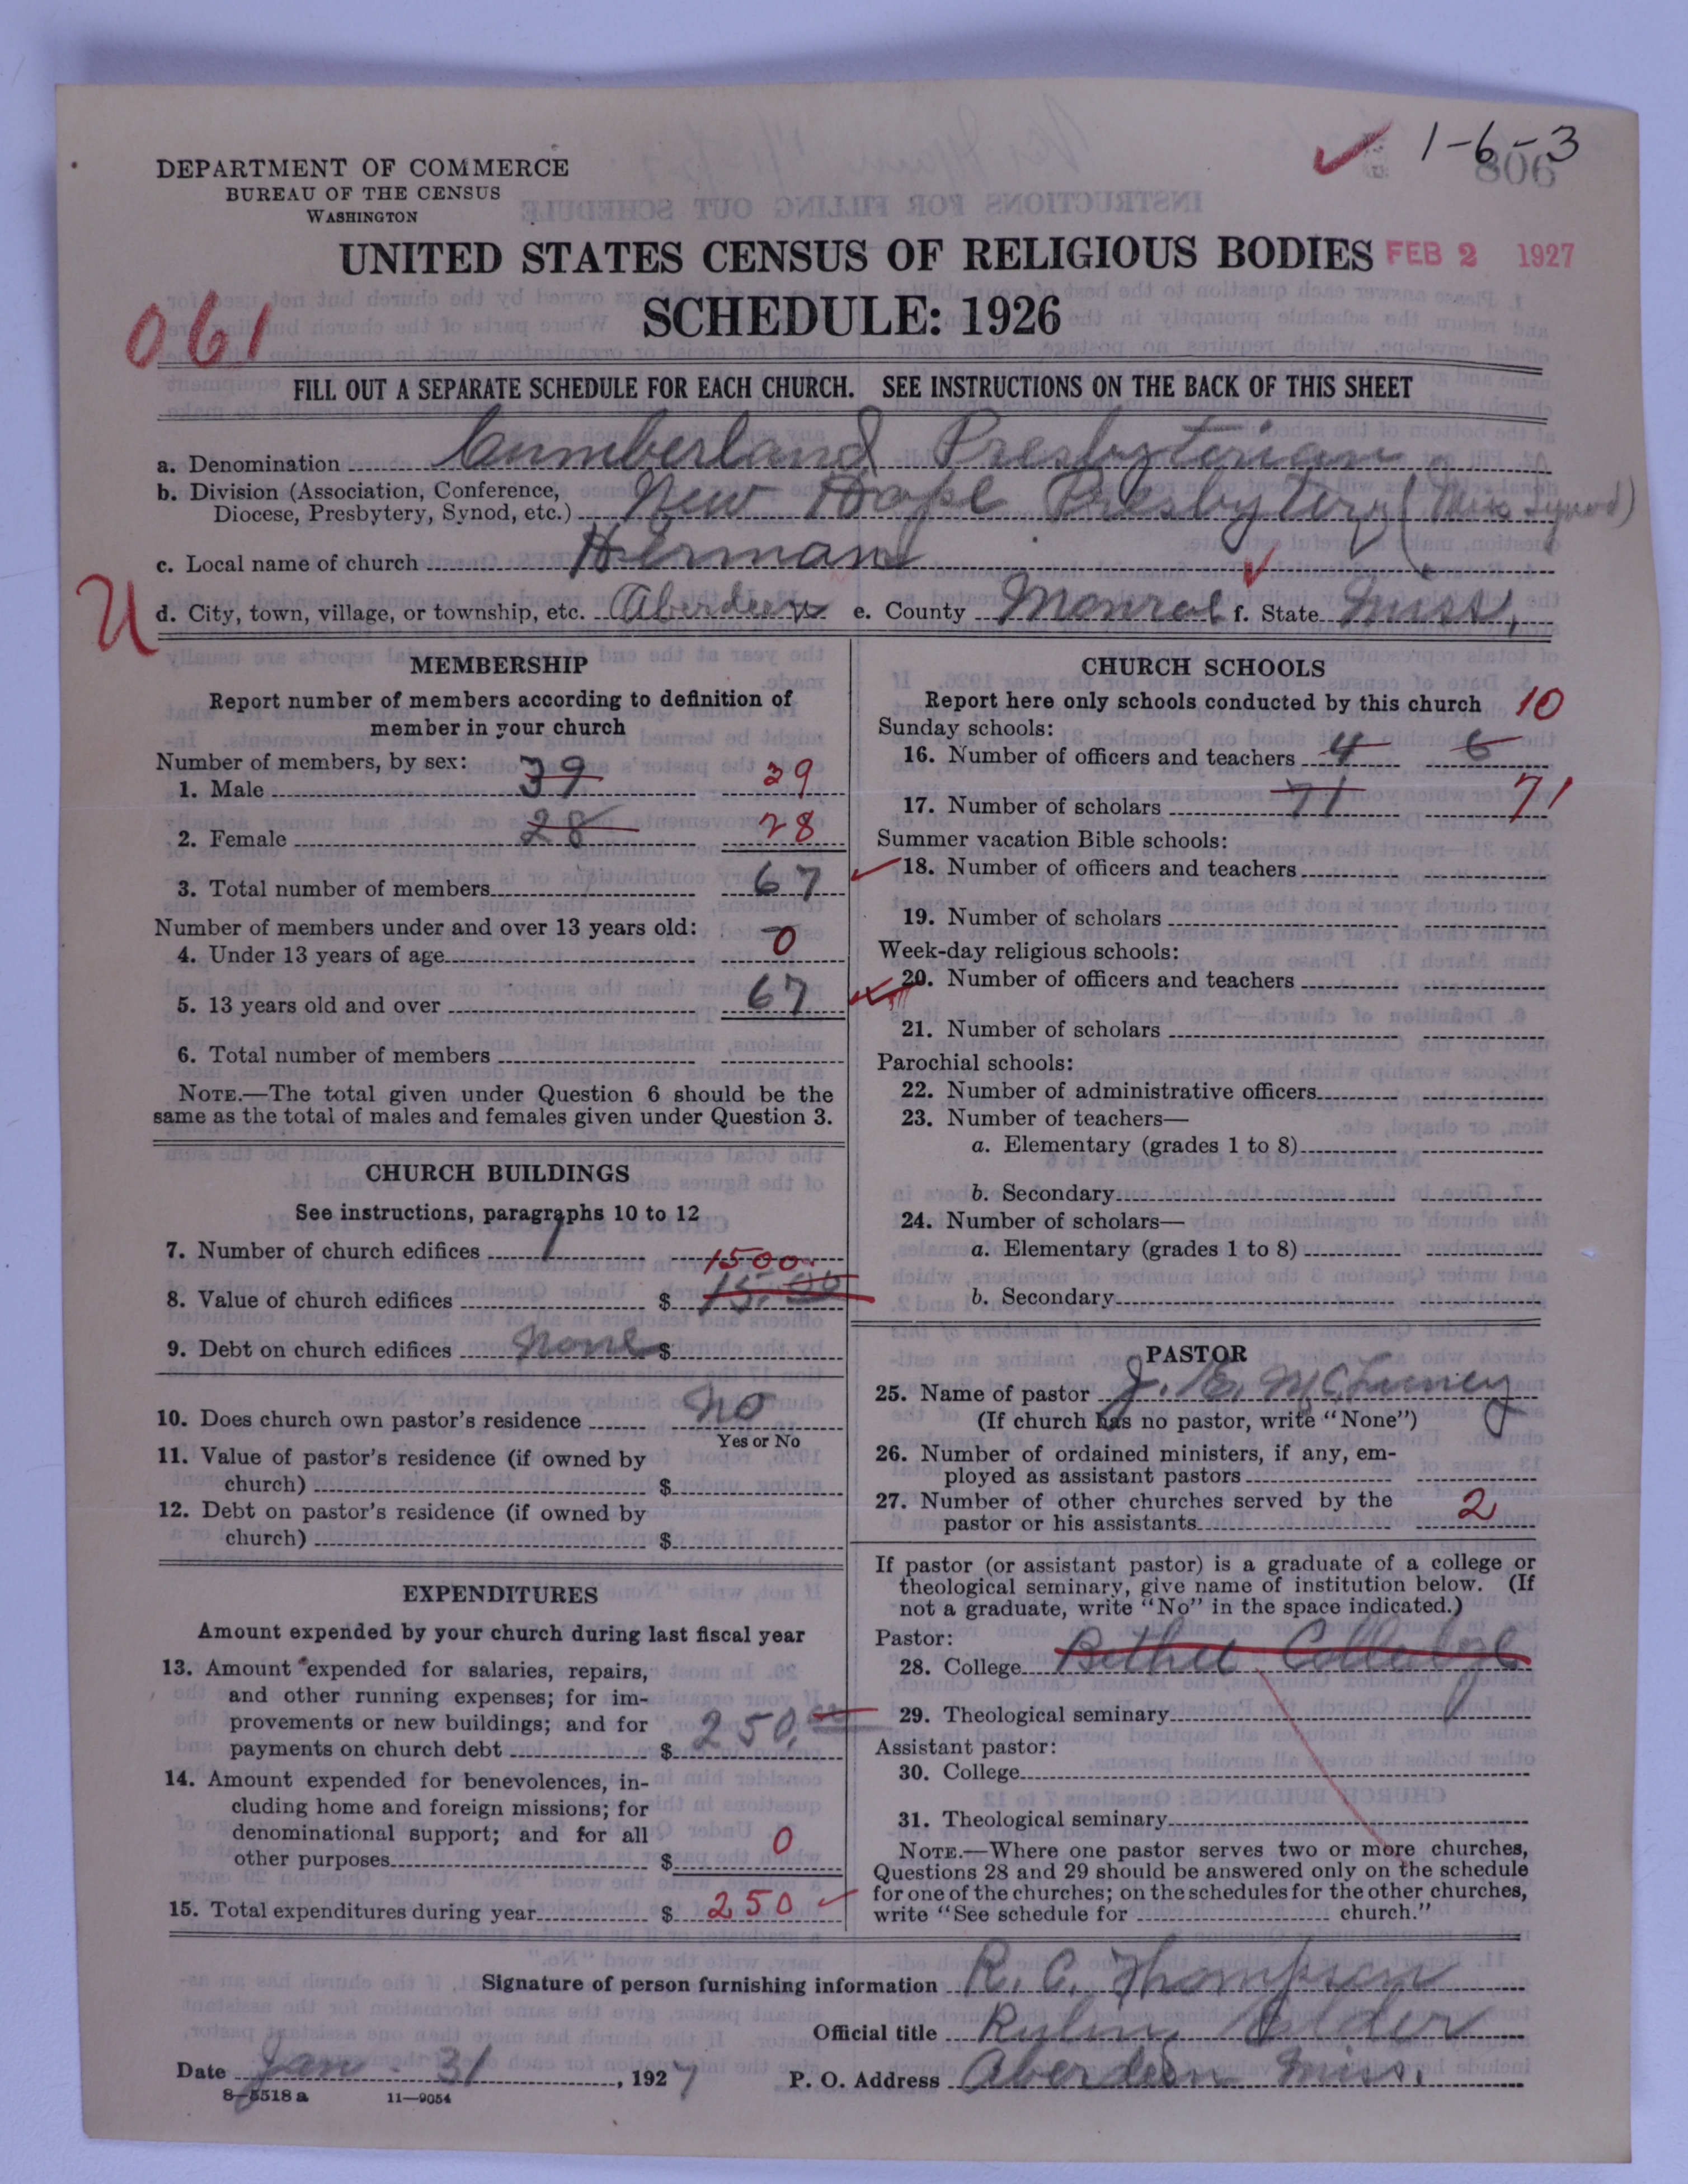 1-6-3
806
DEPARTMENT OF COMMERCE
BUREAU OF THE CENSUS
WASHINGTON
UNITED STATES CENSUS OF RELIGIOUS BODIES FEB 2 1927
SCHEDULE: 1926
061
FILL OUT A SEPARATE SCHEDULE FOR EACH CHURCH. SEE INSTRUCTIONS ON THE BACK OF THIS SHEET
a. Denomination Cumberland Presbyterian
b. Division (Association, Conference,
Diocese, Presbytery, Synod, etc.) New Hope Presbytery (Miss Synod)
c. Local name of church Herman
U
d. City, town, village, or township, etc. Aberdeen e. County Monroe f. State Miss,
MEMBERSHIP
Report number of members according to definition of
member in your church
Number of members, by sex:
1. Male 39 39
2. Female 28 28
3. Total number of members 67
Number of members under and over 13 years old:
4. Under 13 years of age 0
5. 13 years old and over 67
6. Total number of members
NOTE.—The total given under Question 6 should be the
same as the total of males and females given under Question 3.
CHURCH BUILDINGS
See instructions, paragraphs 10 to 12
7. Number of church edifices 1
1500
8. Value of church edifices $ 15.00
9. Debt on church edifices none $
10. Does church own pastor's residence no
Yes or No
11. Value of pastor's residence (if owned by
church) $
12. Debt on pastor's residence (if owned by
church) $
EXPENDITURES
Amount expended by your church during last fiscal year
13. Amount expended for salaries, repairs,
and other running expenses; for im-
provements or new buildings; and for
payments on church debt $ 250.00
14. Amount expended for benevolences, in-
cluding home and foreign missions; for
denominational support; and for all
other purposes $ 0
15. Total expenditures during year $ 250
CHURCH SCHOOLS
Report here only schools conducted by this church 10
Sunday schools:
16. Number of officers and teachers 4 6
17. Number of scholars 71 71
Summer vacation Bible schools:
18. Number of officers and teachers
19. Number of scholars
Week-day religious schools:
20. Number of officers and teachers
21. Number of scholars
Parochial schools:
22. Number of administrative officers
23. Number of teachers—
a. Elementary (grades 1 to 8)
b. Secondary
24. Number of scholars—
a. Elementary (grades 1 to 8)
b. Secondary
PASTOR
25. Name of pastor J. E.
(If church has no pastor, write "None")
26. Number of ordained ministers, if any, em-
ployed as assistant pastors
27. Number of other churches served by the
pastor or his assistants 2
If pastor (or assistant pastor) is a graduate of a college or
theological seminary, give name of institution below. (If
not a graduate, write "No" in the space indicated.)
Pastor:
28. College Bethel Colledge
29. Theological seminary
Assistant pastor:
30. College
31. Theological seminary
NOTE.—Where one pastor serves two or more churches,
Questions 28 and 29 should be answered only on the schedule
for one of the churches; on the schedules for the other churches,
write "See schedule for church."
Signature of person furnishing information R. C. Thompson
Official title Ruling Elder
Date Jan 31, 1927 P. O. Address Aberdeen Miss.
8-5518 a 11-9054